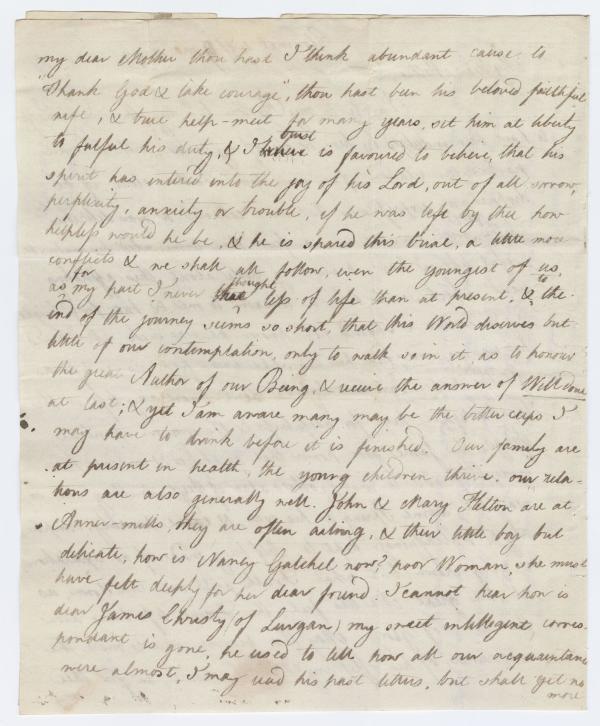 my dear Mother thou hast I think abundant cause to
"thank God & take courage", thou hast been his beloved faithful
wife, & true help-meet for many years, set him at liberty
to fulful his duty, & I trust is favoured to believe, that his
spirit has entered into the joy of his Lord, out of all sorrow,
perplexity, anxiety or trouble, if he was left by thee how
helpless would he be, & he is spared this trial, a little more
conflicts & we shall all follow, even the youngest of us,
as for my part I never thought less of life than at present, & the
end of the journey seems so short, that this World deserves but
little of our contemplation, only to walk so in it, as to honour
the great Author of our Being, & receive the answer of Well done
at last; & yet I am aware many may be the bitter cups I
may have to drink before it is finished. Our family are
at present in health, the young children thrive. our rela-
tions are also generally well. John & Mary Felton are at
Anner-mills, they are often ailing, & their little boy but
delicate, how is Nancy Gatchel now? poor Woman, she must
have felt deeply for her dear friend. I cannot hear how is
dear James Christy (of Lurgan) my sweet intelligent corres-
pondant is gone, he used to tell how all our acquaintance
were almost, I may read his past letters, but shall get no
more